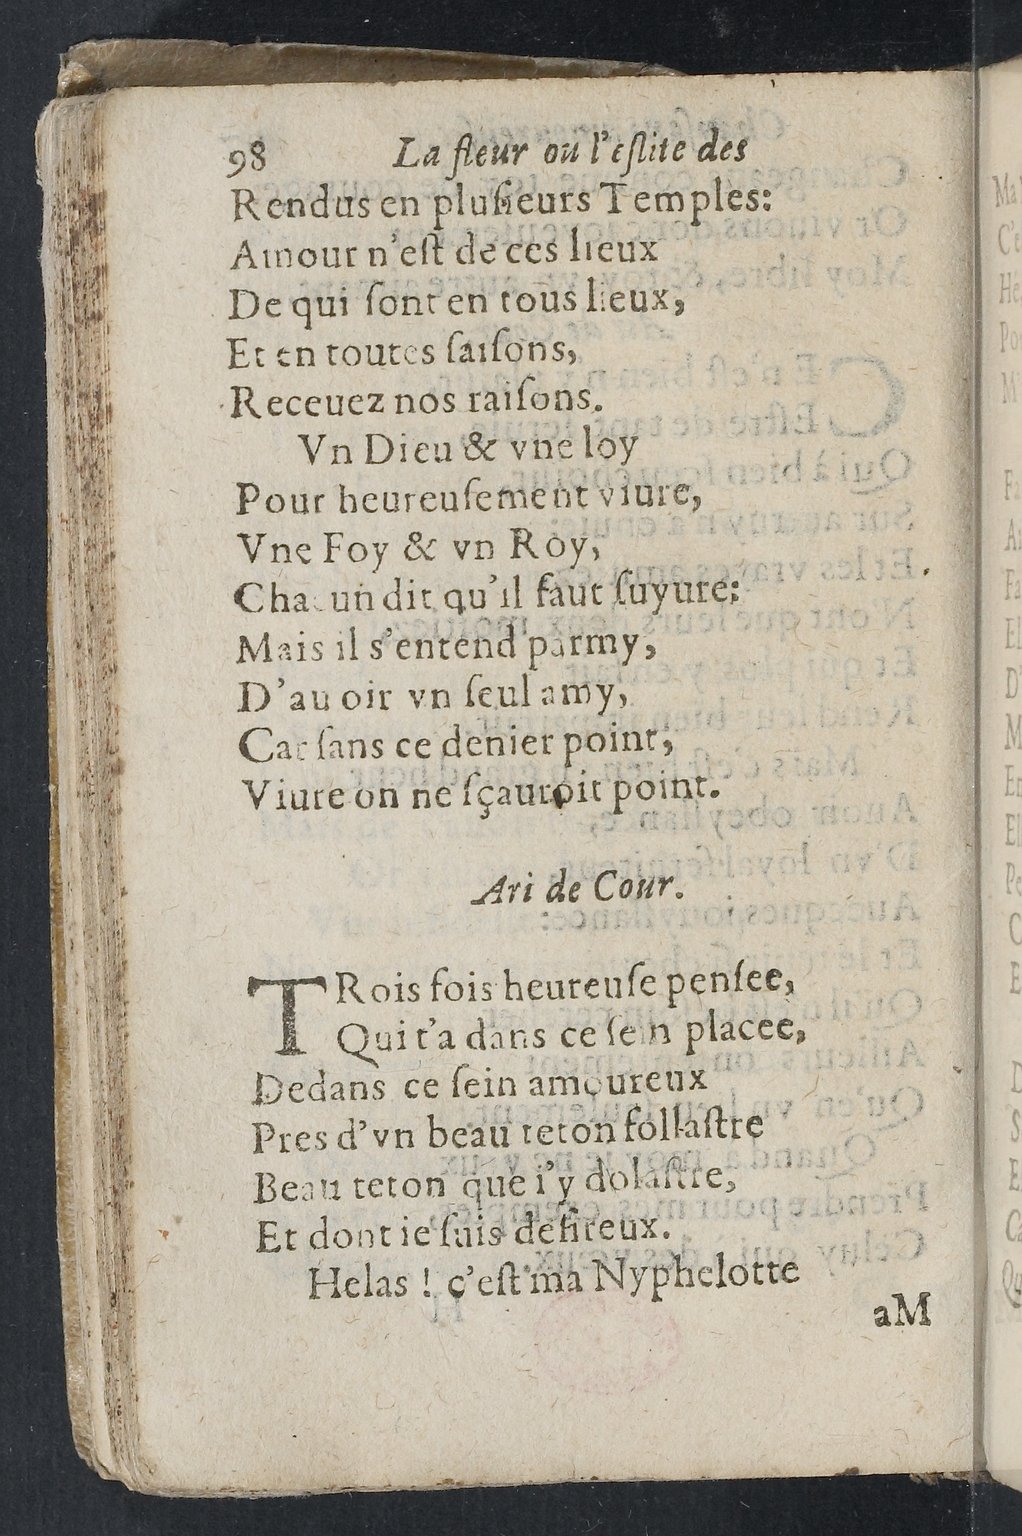 98 La fleur ou l'eſlite des
Rendus en pluſieurs Temples:
Amour n'eſt de ces lieux
De qui ſont en tous lieux,
Et en toutes ſaiſons,
Receuez nos raiſons.
Vn Dieu & vne loy
Pour heureuſement viure,
Vne Foy & vn Roy,
Chacun dit qu'il faut ſuyure:
Mais il s'entend parmy,
D'auoir vn ſeul amy,
Car ſans ce denier point,
Viure on ne ſçauroit point.
Ari de Cour.
TRois fois heureuſe penſee,
Qui t'a dans ce ſein placee,
Dedans ce ſein amoureux
Pres d'vn beau teton follaſtre
Beau teton que i'y dolaſtre,
Et dont ie ſuis deſireux.
Helas ! c'eſt ma Nyphelotte
aM